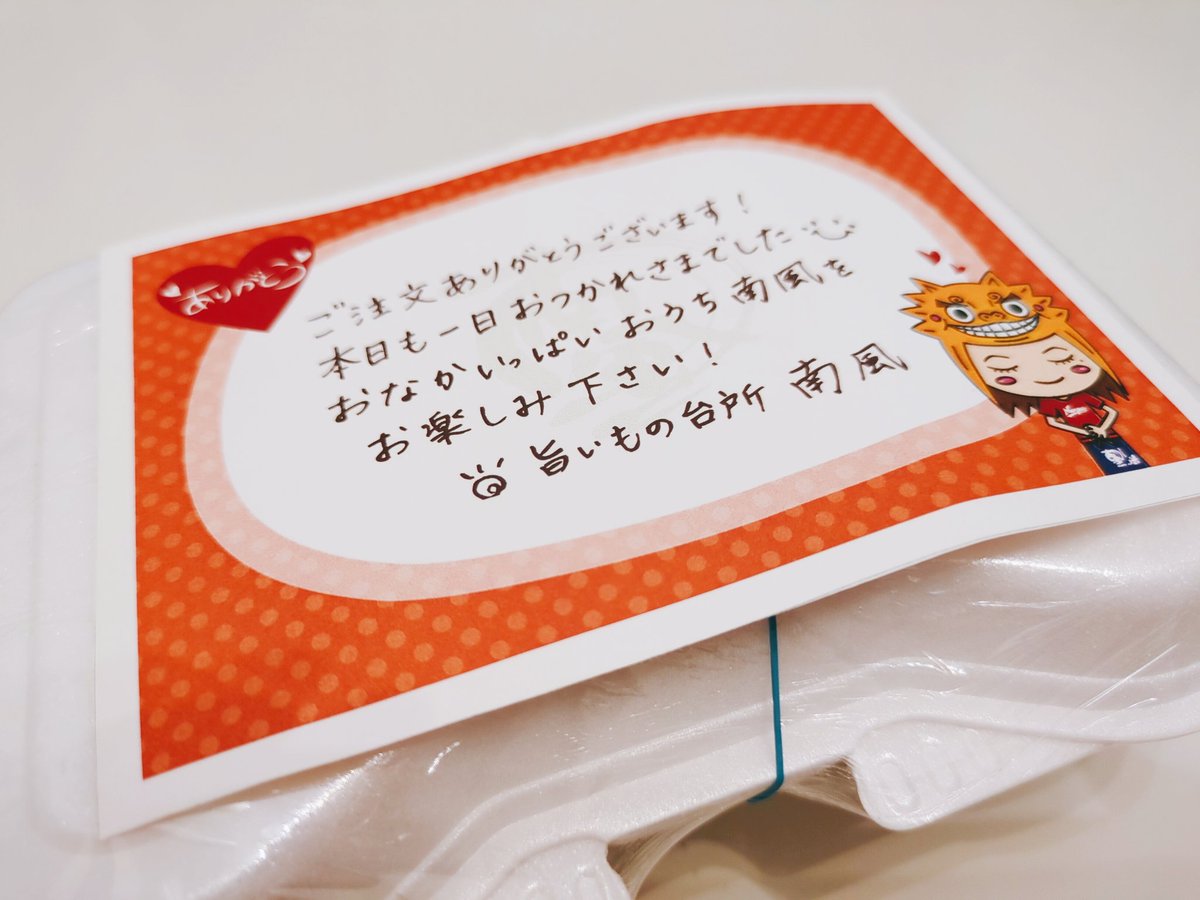 ありがとう
ご注文ありがとうございます!
本日も一日おつかれさまでした
おなかいっぱいおうち南風を
お楽しみ下さい!
旨いもの台所 南風